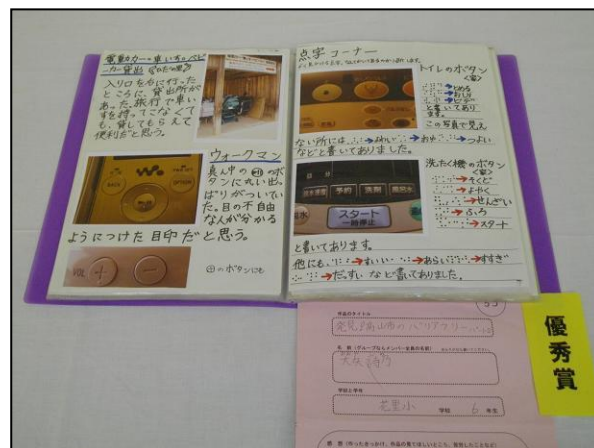 電動カー・車いす・ベビ
ーカー貸出
入り口を右に行った
ところに、貸出所が
あった。旅行で車い
すを持ってこなくて
も、貸してもらえて
便利だと思う。
ウォークマン
真ん中の
のボ
タンに丸い出っ
ぱりがついてい
た。目の不自由
なんが分かる
ようにつけた目印だと思う。
BACK
OPTION
VOL + −
のボタンにも
点字コーナー
トイレのボタン
<家>
とめる
おしり
ビデ
と書いてあり
ます。
この写真で見え
ない所には
よわい
つよい
などと書いてありました。
洗たく機のボタン
<家>
そくど
よやく
せんざい
ふろ
スタート
予約
洗剤
風呂水
スタート
一時停止
と書いてあります。
他にも、
すいい
あらい
すすぎ
だっすい などと書いてありました。
作品のタイトル
発見!高山市のバリアフリー
名前(グループならメンバー全員の名前)
学校と学年
花里小 学校 6 年生
優秀賞